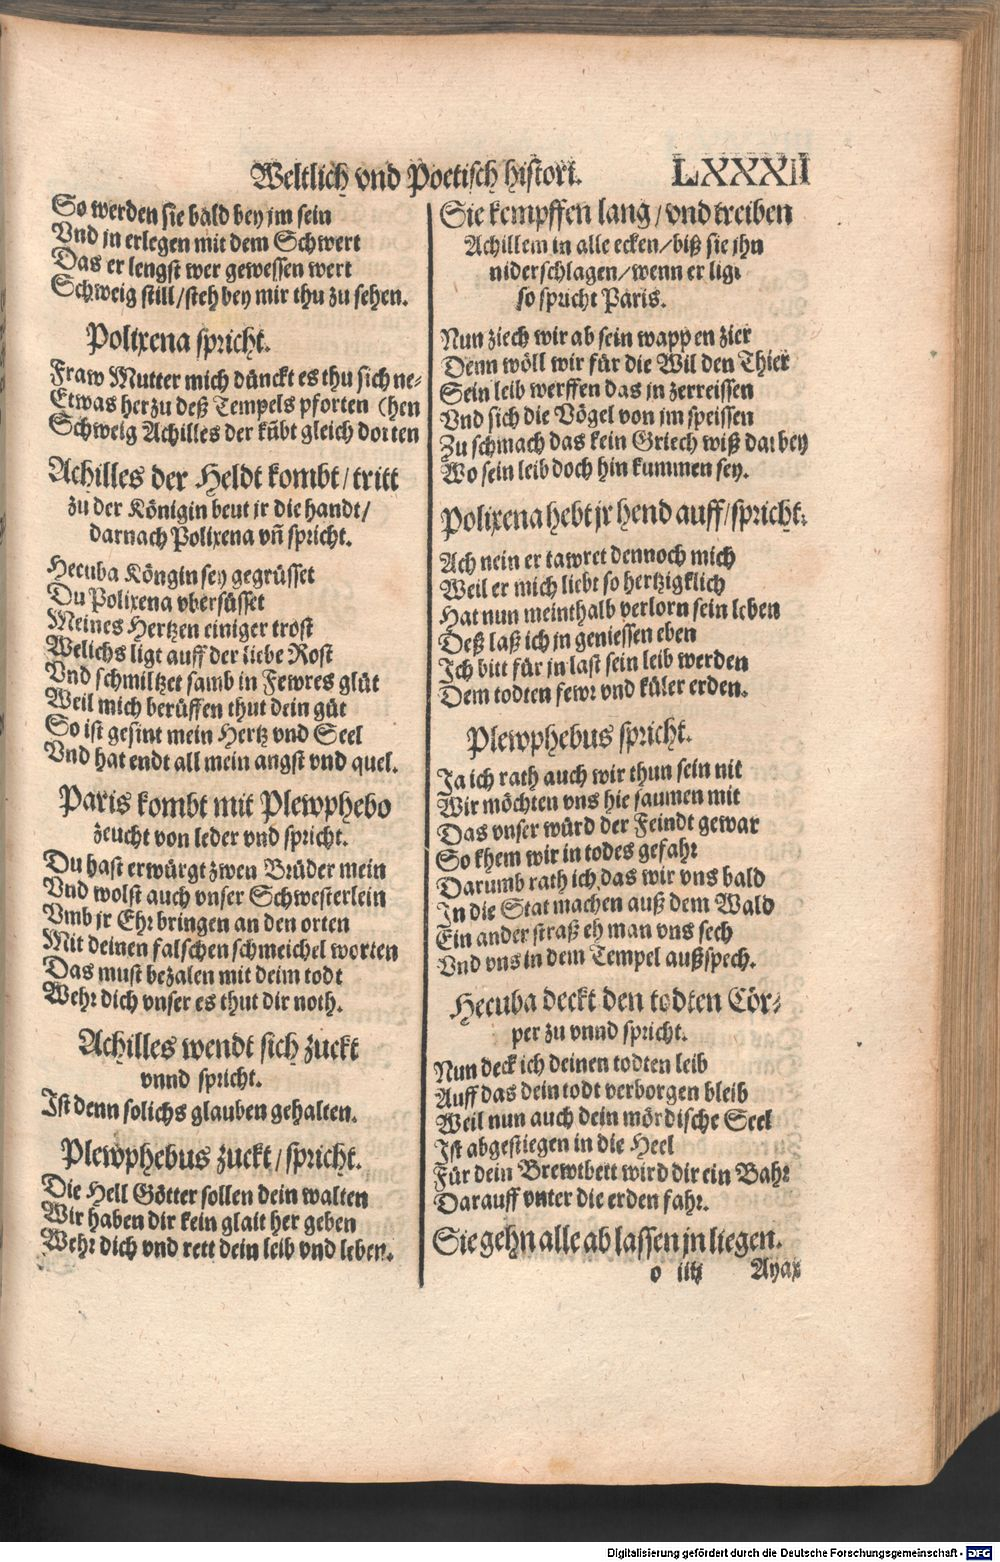 Weltlich vnd Poetisch histori. LXXXII
So werden sie bald bey jm sein
Vnd jn erlegen mit dem Schwert
Das er lengst wer gewessen wert
Schweig still/steh bey mir thu zu sehen.
Polixena spricht.
Fraw Mutter mich dünckt es thu sich ne-
Etwas herzu deß Tempels pforten (hen
Schweig Achilles der kũbt gleich dorten
Achilles der Heldt kombt/tritt
zu der Königin beut jr die handt/
darnach Polixena vñ spricht.
Hecuba Köngin sey gegrüsset
Du Polixena vbersüsset
Meines Hertzen einiger trost
Welichs ligt auff der liebe Rost
Vnd schmiltzet samb in Fewres glüt
Weil mich berüffen thut dein güt
So ist gesint mein Hertz vnd Seel
Vnd hat endt all mein angst vnd quel.
Paris kombt mit Plewphebo
zeucht von leder vnd spricht.
Du hast erwürgt zwen Brüder mein
Vnd wolst auch vnser Schwesterlein
Vmb jr Ehr bringen an den orten
Mit deinen falschen schmeichel worten
Das must bezalen mit deim todt
Wehr dich vnser es thut dir noth.
Achilles wendt sich zuckt
vnnd spricht.
Ist denn solichs glauben gehalten.
Plewphebus zuckt/spricht.
Die Hell Götter sollen dein walten
Wir haben dir kein glait her geben
Wehr dich vnd rett dein leib vnd leben.
Sie kempffen lang/vnd treiben
Achillem in alle ecken/biß sie jhn
niderschlagen/wenn er ligt
so spricht Paris.
Nun ziech wir ab sein wappen zier
Denn wöll wir für die Wilden Thier
Sein leib werffen das jn zerreissen
Vnd sich die Vögel von jm speissen
Zu schmach das kein Griech wiß darbey
Wo sein leib doch hin kummen sey.
Polixena hebt jr hend auff/spricht.
Ach nein er tawret dennoch mich
Weil er mich liebt so hertzigklich
Hat nun meinthalb verlorn sein leben
Deß laß ich jn geniessen eben
Ich bitt für jn last sein leib werden
Dem todten fewr vnd küler erden.
Plewphebus spricht.
Ja ich rath auch wir thun sein nit
Wir möchten vns hie saumen mit
Das vnser würd der Feindt gewar
So khem wir in todes gefahr
Darumb rath ich das wir vns bald
In die Stat machen auß dem Wald
Ein ander straß eh man vns sech
Vnd vns in dem Tempel außspech.
Hecuba deckt den todten Cör-
per zu vnnd spricht.
Nun deck ich deinen todten leib
Auff das dein todt verborgen bleib
Weil nun auch dein mördische Seel
Ist abgestiegen in die Heel
Für dein Brewtbett wird dir ein Bahr
Darauff vnter die erden fahr.
Sie gehn alle ab lassen jn liegen.
o iiij Ayax
Digitalisierung gefördert durch die Deutsche Forschungsgemeinschaft - DFG